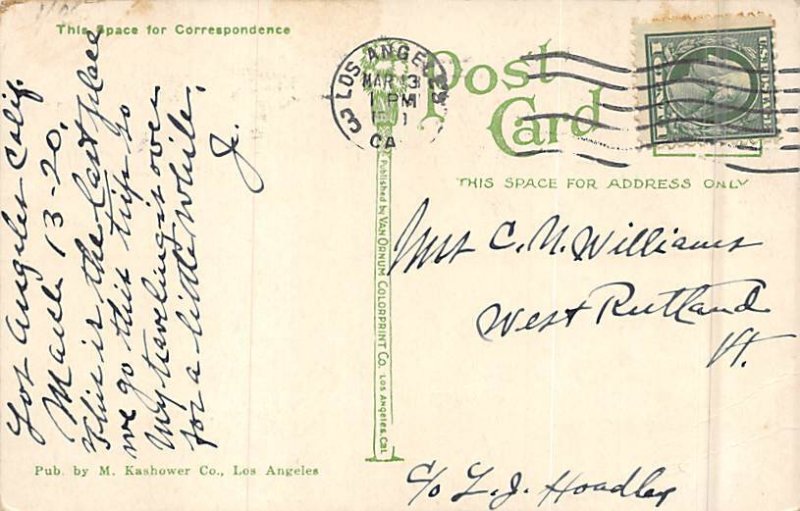 This Space for Correspondence
Los Angeles Calif.
March 13-20,
This is the last place
we go this trip so
my traveling is over
for a little while,
J.
Pub. by M. Kashower Co., Los Angeles
Post
Card
LOS ANGELES
MAR 13
1 PM
CA
3
THIS SPACE FOR ADDRESS ONLY
Published by VAN ORNUM COLORPRINT CO. LOS ANGELES, CAL
Mrs C. N. Williams
West Rutland
Vt.
c/o L. J. Hoadley